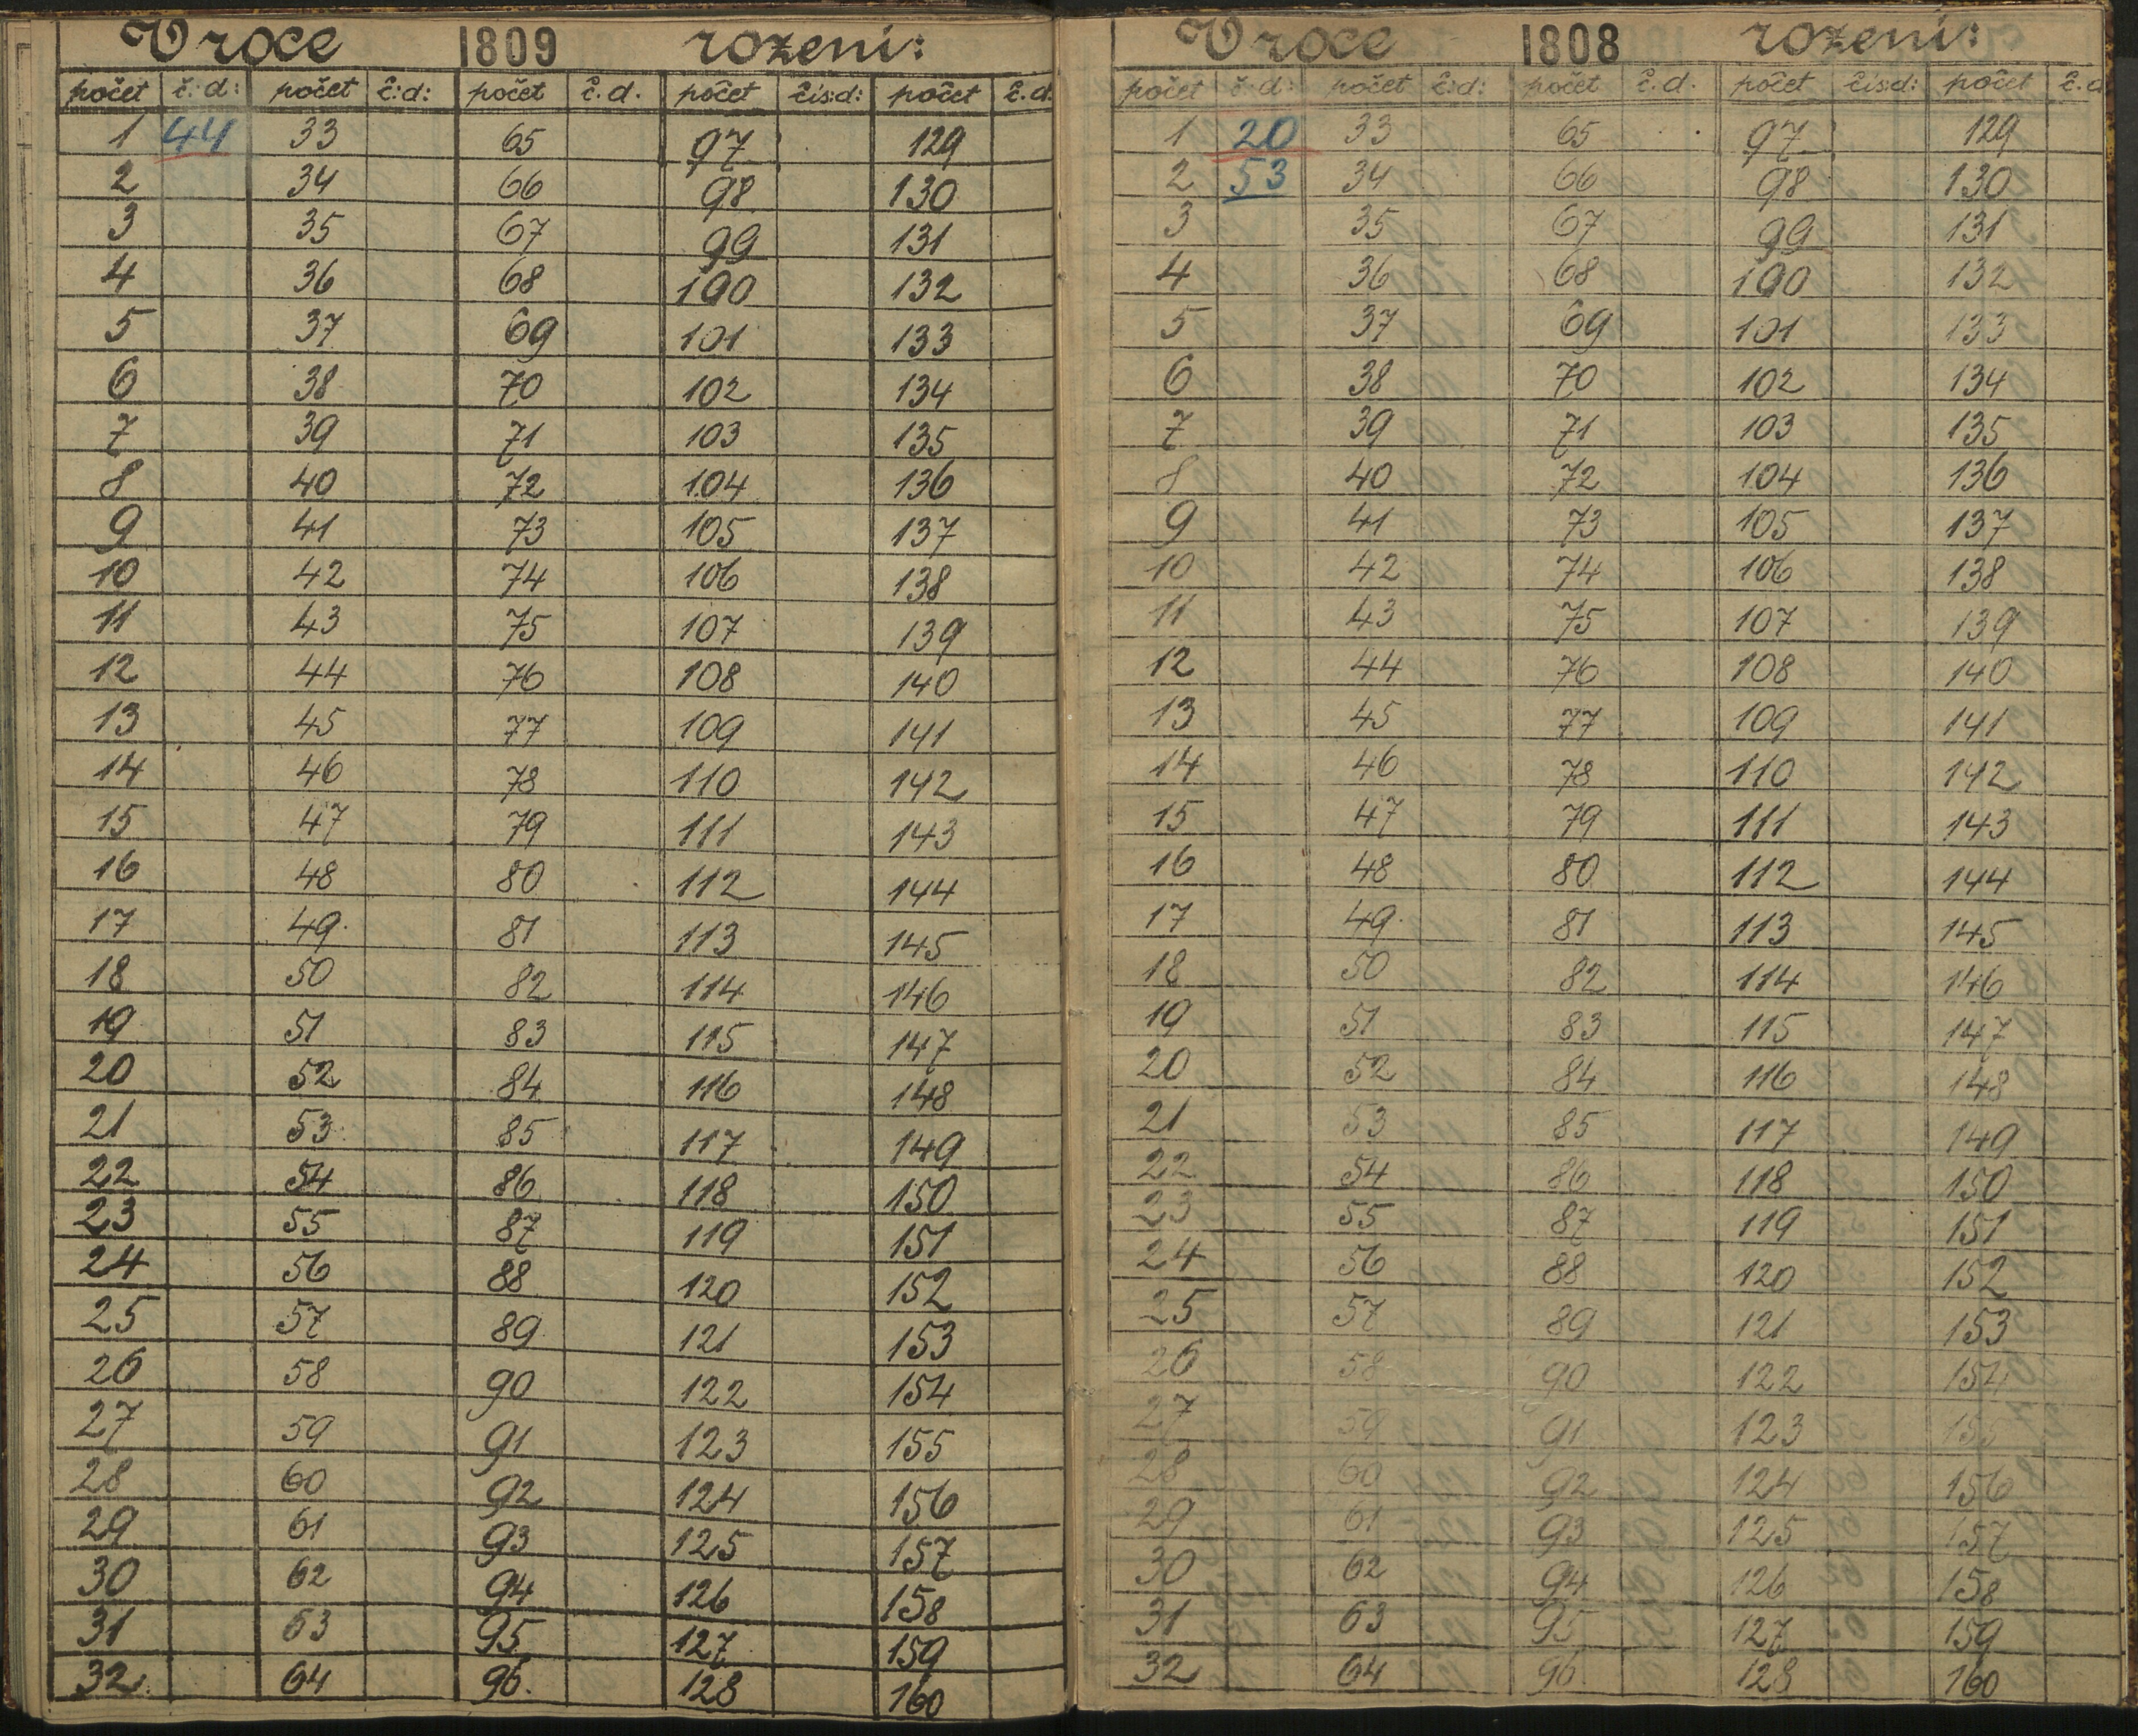 V roce 1809 rozeni:
počet č:d: počet č:d: počet č.d. počet čís:d: počet č.d.
1 44 33 65 97 129
2 34 66 98 130
3 35 67 99 131
4 36 68 100 132
5 37 69 101 133
6 38 70 102 134
7 39 71 103 135
8 40 72 104 136
9 41 73 105 137
10 42 74 106 138
11 43 75 107 139
12 44 76 108 140
13 45 77 109 141
14 46 78 110 142
15 47 79 111 143
16 48 80 112 144
17 49. 81 113 145
18 50 82 114 146
19 51 83 115 147
20 52 84 116 148
21 53 85 117 149
22 54 86 118 150
23 55 87 119 151
24 56 88 120 152
25 57 89 121 153
26 58 90 122 154
27 59 91 123 155
28 60 92 124 156
29 61 93 125 157
30 62 94 126 158
31 63 95 127 159
32 64 96 128 160
V roce 1808 rozeni:
počet č:d: počet č:d: počet č.d. počet čís:d: počet č.d
1 20 33 65 97 129
2 53 34 66 98 130
3 35 67 99 131
4 36 68 100 132
5 37 69 101 133
6 38 70 102 134
7 39 71 103 135
8 40 72 104 136
9 41 73 105 137
10 42 74 106 138
11 43 75 107 139
12 44 76 108 140
13 45 77 109 141
14 46 78 110 142
15 47 79 111 143
16 48 80 112 144
17 49. 81 113 145
18 50 82 114 146
19 51 83 115 147
20 52 84 116 148
21 53 85 117 149
22 54 86 118 150
23 55 87 119 151
24 56 88 120 152
25 57 89 121 153
26 58 90 122 154
27 59 91 123 155
28 60 92 124 156
29 61 93 125 157
30 62 94 126 158
31 63 95 127 159
32 64 96 128 160